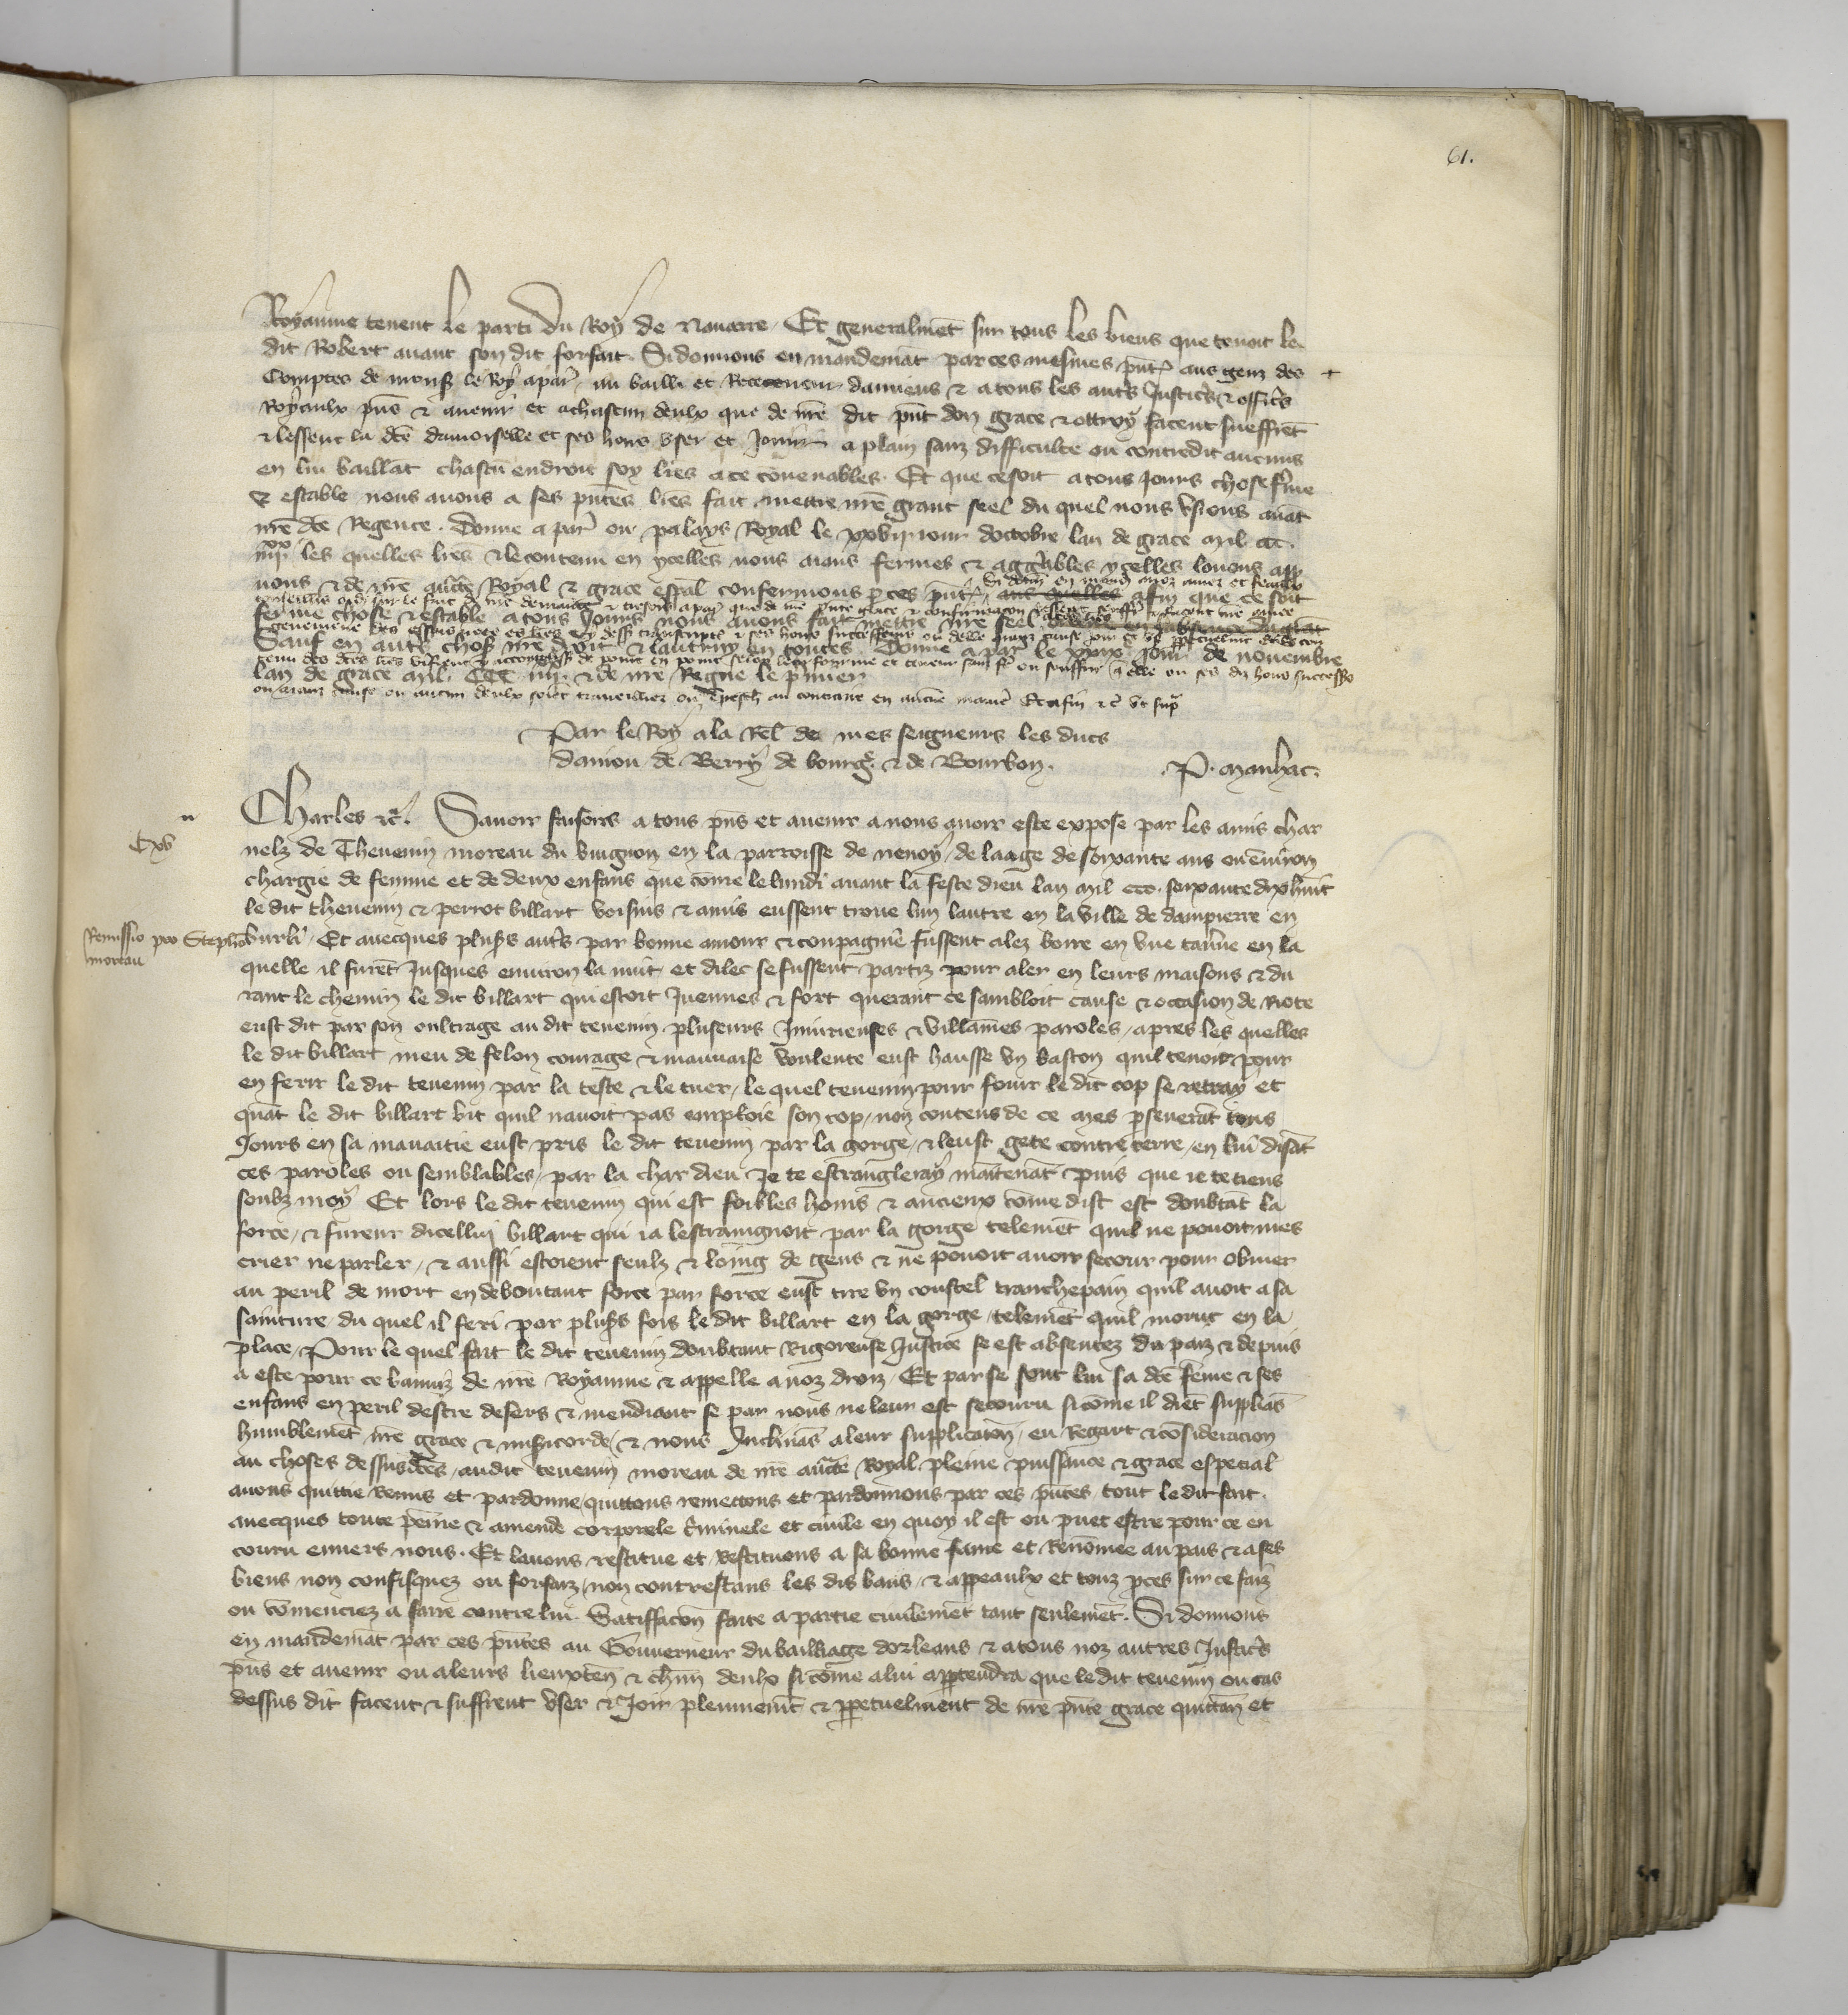 61.
Royaume tenent le parti du Roy de Navarre. Et generalmēt sur tous les biens que tenoit le
dit Robert avant son dit forfait. Si donnons en mandemāt par ces mesmes pn̄t aus genz des +
Comptes de mons̄ le Roy a par̄, au bailli et Receveur damiens & a tous les autr̄s Justic̄rs & offic̄rs
Royaulx pn̄s & avenir et a chascun deulx que de nr̄e dit pn̄t don grace & ottroy facent sueffrēt
& lessent la dc̄e damoiselle et ses hoirs user et Joir a plain sanz difficulte ou contredit aucuns
en lui baillāt chascū endroit soy lr̄es a ce cōvenables. Et que ce soit a tous Jours chose f̄me
& estable nous avons a ses pn̄tes lr̄es fait mettre nr̄e grant seel du quel nous usions avāt
nr̄e dc̄e Regence. Donne a par̄ ou palays Royal le xxvij jour doctobre lan de grace mil ccc.
les quelles lr̄es & le contenu en ycelles nous aians fermes & aggr̄ables ycelles louons app
nous & de nr̄e auctē Royal & grace esp̄al confermons p ces pn̄t, aus quelles afin que ce soit
ferme chose & estable a tous Jours nous avons fait mettre nr̄e seel
Sauf en autr̄s chos̄ nr̄e droit & lautruy en toutes. Donne a par̄ le xxix Jour de novembre
lan de grace mil CCC & de nr̄e Regne le p̄mier
Par le Roy a la Rel̄ de mes seigneurs les ducs
danjou de Berry de bourḡ. & de Bourbon. P. Manhac.
Cxv
Charles &c̄. Savoir faisons a tous pn̄s et avenir a nous avoir este expose par les amis char
nelz de Thevenin moreau du buignon en la parroisse de nevoy, de laage de soixante ans ou ēviron
chargie de femme et de deux enfans que cōme le lundi avant la feste dieu lan mil ccc. soixante dix huit
le dit thevenin & perrot billart voisins & amis eussent trove lun lautre en la ville de dampierre en
Remissio pro Stepho
moreau
burli, Et avecques plus̄s autr̄s par bonne amour & conpagnie fussent alez boire en une tav̄ne en la
quelle il furēt Jusques environ la nuit, et dilec se fussent partiz pour aler en leurs maisons & du
rant le chemin le dit billart qui estoit Juennes & fort querant ce sambloit cause & occasion de Riote
eust dit par son oultrage au dit tevenin pluseurs Injurieuses & villaines paroles, apres les quelles
le dit billart meu de felon courage & mauvaise voulente eust hausse un baston quil tenoit pour
en ferir le dit tevenin par la teste & le tuer, le quel tevenin pour fouir le dit cop se retray et
quāt le dit billart vit quil navoit pas emploie son cop, non contens de ce mes p̄severāt tous
Jours en sa mavaitie eust pris le dit tevenin par la gorge, & leust gete contre terre, en lui disāt
ces paroles ou semblables, par la char dieu Je te estrangleray maitenāt puis que ie te tiens
soubz moy Et lors le dit tevenin qui est foibles homs & ancienx cōme dist est doubtāt la
force, & fureur dicelluy billart qui ia lestraingnoit par la gorge telemēt quil ne povoit mes
crier ne parler, & aussi estoient seulz & loing de gens & ne povoit avoir secour pour obvier
au peril de mort en deboutant force par force eust tire un coustel trenchepain quil avoit a sa
sainture du quel il feri par plus̄s fois le dit billart en la gorge, telemēt quil morut en la
place, Pour le quel fait le dit tevenin doubtant Rigoreuse Justice se est absentez du paiz & depuis
a este pour ce banniz de nr̄e Royaume & appelle a noz droiz, Et par se sont lui sa dc̄e fēme & ses
enfans en peril destre desers & mendiant se par nous ne leur est secouru si cōme il diēt suppliās
humblemēt nr̄e grace & mis̄icorde, & nous Inclinās a leur supplicatōn, eu Regart & cōsideracion
au choses dessusdc̄es, audit tevenin moreau de nr̄e auctē Royal pleine puissance & grace especial
avons quittie Remis et pardonne, quittons remettons et pardonnons par ces pn̄tes, tout le dit fait.
avecques toute peine & amende corporele c̄minele et civile en quoy il est ou puet estre pour ce en
couru envers nous. Et lavons restitue et Restituons a sa bonne fame et Renōmee au pais & a ses
biens non confisquez ou forfaiz, non contrestans les dis bans, & appeaulx et touz p̄ces sur ce faiz
ou cōmenciez a faire contre lui. Satiffacōn faite a partie civilemēt tant seulemēt. Si donnons
en mandemāt par ces pn̄tes au Gouverneur du bailliage dorleans & a tous noz autres Justic̄rs
pn̄s et avenir ou a leurs lieuxtēn & ch̄un deulx si cōme a lui app̄tendra que le dit tevenin ou cas
dessus dit facent & suffrent user & Joir plennemēt & pp̄etuelment de nr̄e pn̄te grace quittan̄ et